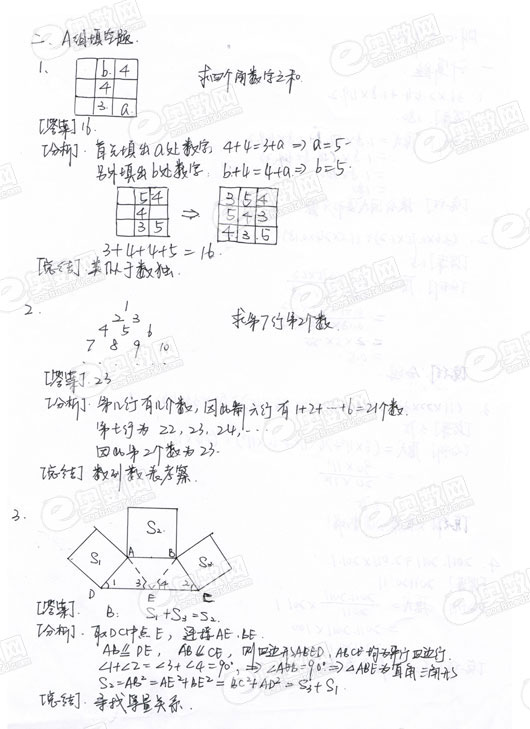 二、A组填空题.
1.
b 4
4
3 a
求四个角数字之和.
[答案] 16.
[分析] 首先填出a处数字, 4+4=3+a ⇒ a=5
另外填出b处数字, b+4=4+a ⇒ b=5.
5 4
4
3 5
⇒
3 5 4
5 4 3
4 3 5
3+4+4+5=16.
[总结] 类似于数独.
2.
1
2 3
4 5 6
7 8 9 10
求第7行第2个数.
[答案] 23
[分析] 第几行有几个数, 因此前六行有1+2+…+6=21个数.
第七行为 22, 23, 24, …
因此第2个数为23.
[总结] 数列数表考察.
3.
S₁ S₂ S₃
A B
1 3 4 2
D E C
[答案] B. S₁+S₃=S₂.
[分析] 取DC中点E, 连接AE、BE.
AB∥DE, AB∥CE, 则四边形ABED、ABCE均为平行四边形.
∠1+∠2=∠3+∠4=90°, ⇒ ∠AEB=90° ⇒ △ABE为直角三角形
S₂=AB²=AE²+BE²=BC²+AD²=S₃+S₁.
[总结] 寻找等量关系.
e奥数网